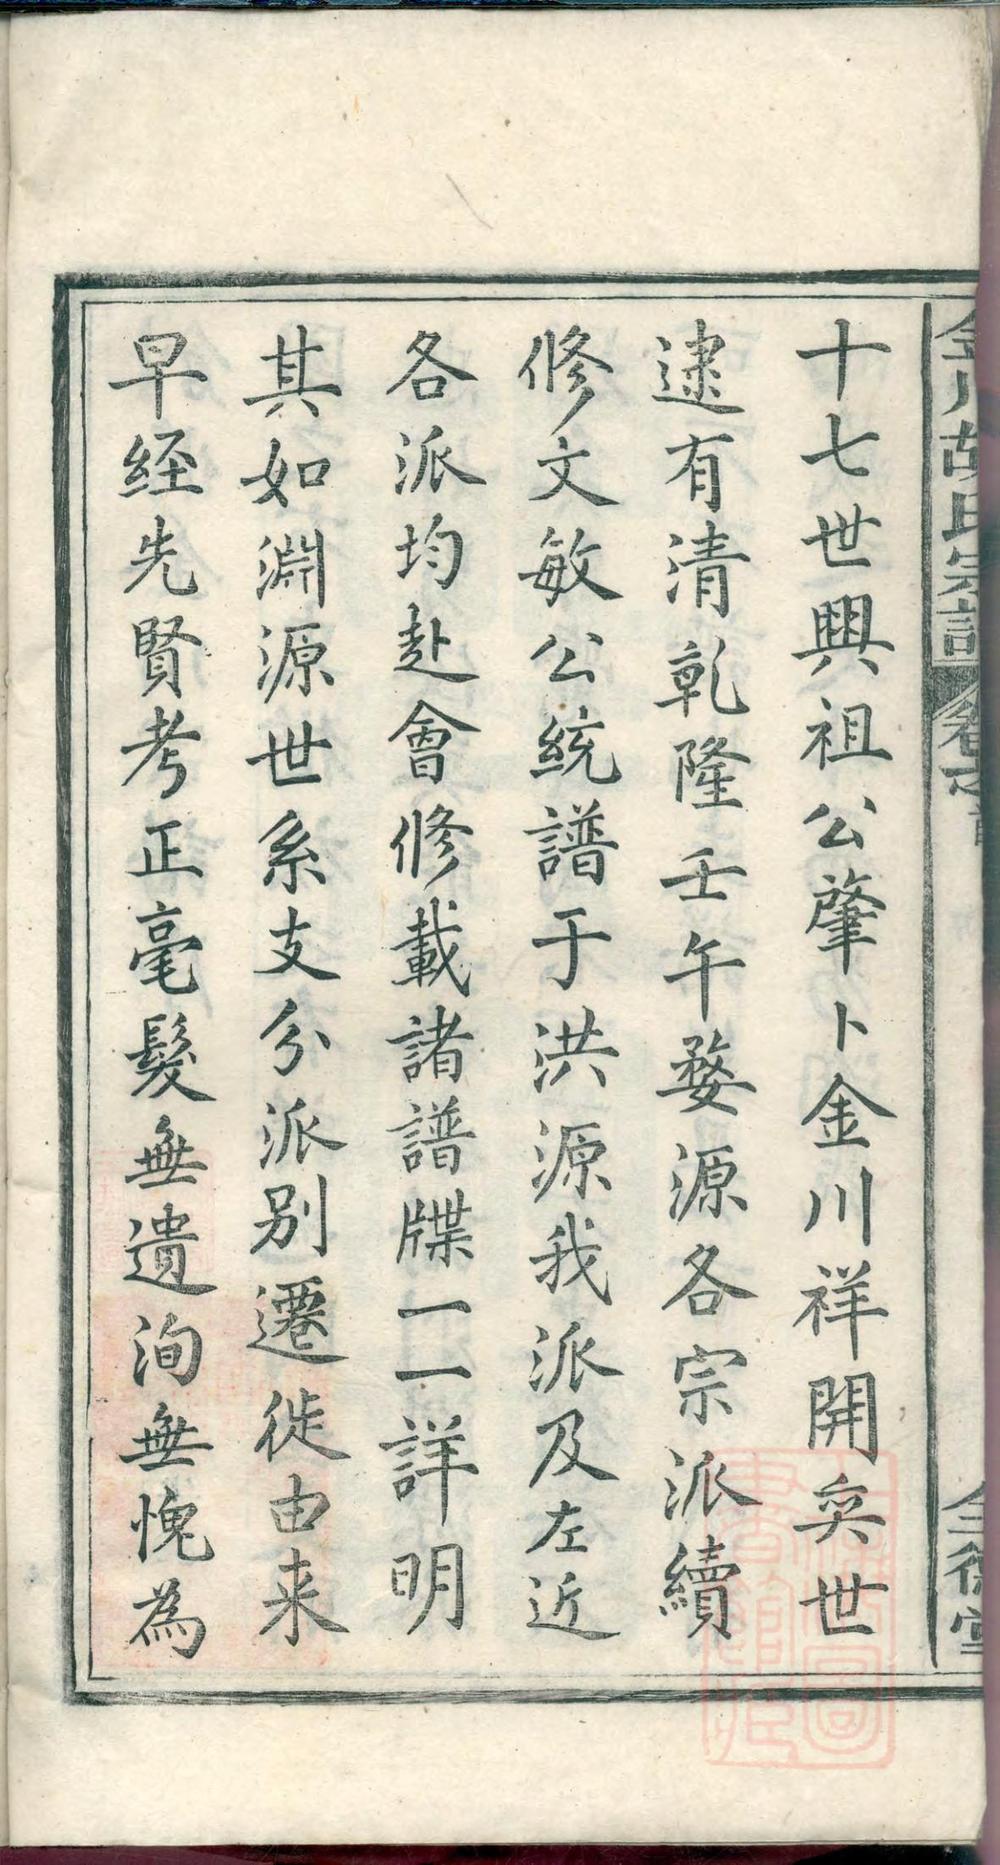 金川胡氏宗譜 卷之首 三德堂
十七世興祖公肇卜金川祥開奕世
逮有清乾隆壬午婺源各宗派續
修文敏公統譜于洪源我派及左近
各派均赴會修載諸譜牒一一詳明
其如淵源世系支分派別遷徙由来
早經先賢考正毫髮無遺洵無愧為